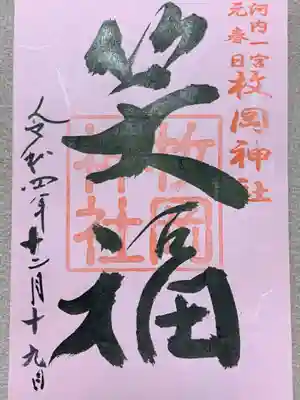 河内一宮
元春日
枚岡神社
笑福
枚岡神社
令和四年十二月十九日